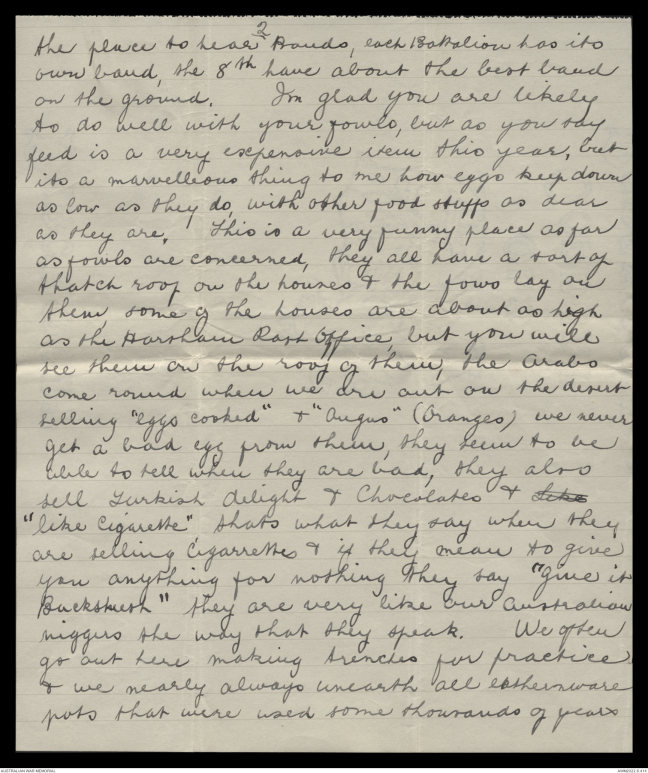 2
the place to hear Bands, each Battalion has its
own band, the 8th have about the best band
on the ground. Im glad you are likely
to do well with your fowls, but as you say
feed is a very expensive item this year, but
its a marvelleous thing to me how eggs keep down
as low as they do, with other food stuffs as dear
as they are. This is a very funny place as far
as fowls are concerned, they all have a sort of
thatch roof on the houses & the fowls lay on
them, some of the houses are about as high
as the Horsham Post Office, but you will
see them on the roof of them, the Arabs
come round when we are out on the desert
selling "eggs cooked" & "Angus" (Oranges) we never
get a bad egg from them, they seem to be
able to tell when they are bad, they also
sell Turkish delight & Chocolates & like
"like Cigarette" thats what they say when they
are selling Cigarrettes & if they mean to give
you anything for nothing they say "Give it
Buckshush" they are very like our Australian
niggers the way that they speak. We often
go out here making trenches for practice
& we nearly always unearth all eathernware
pots that were used some thousands of years
AUSTRALIAN WAR MEMORIAL